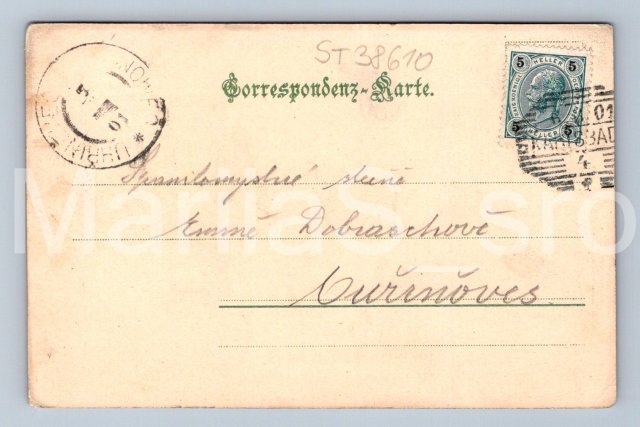 ST 38610
Correspondenz-Karte.
5 HELLER 5
5 HELLER 5
01
KARLSBAD
4
01
Spanilomyslné slečně
Emmě Dobraschově
Ouřinoves.
ManiaS sro